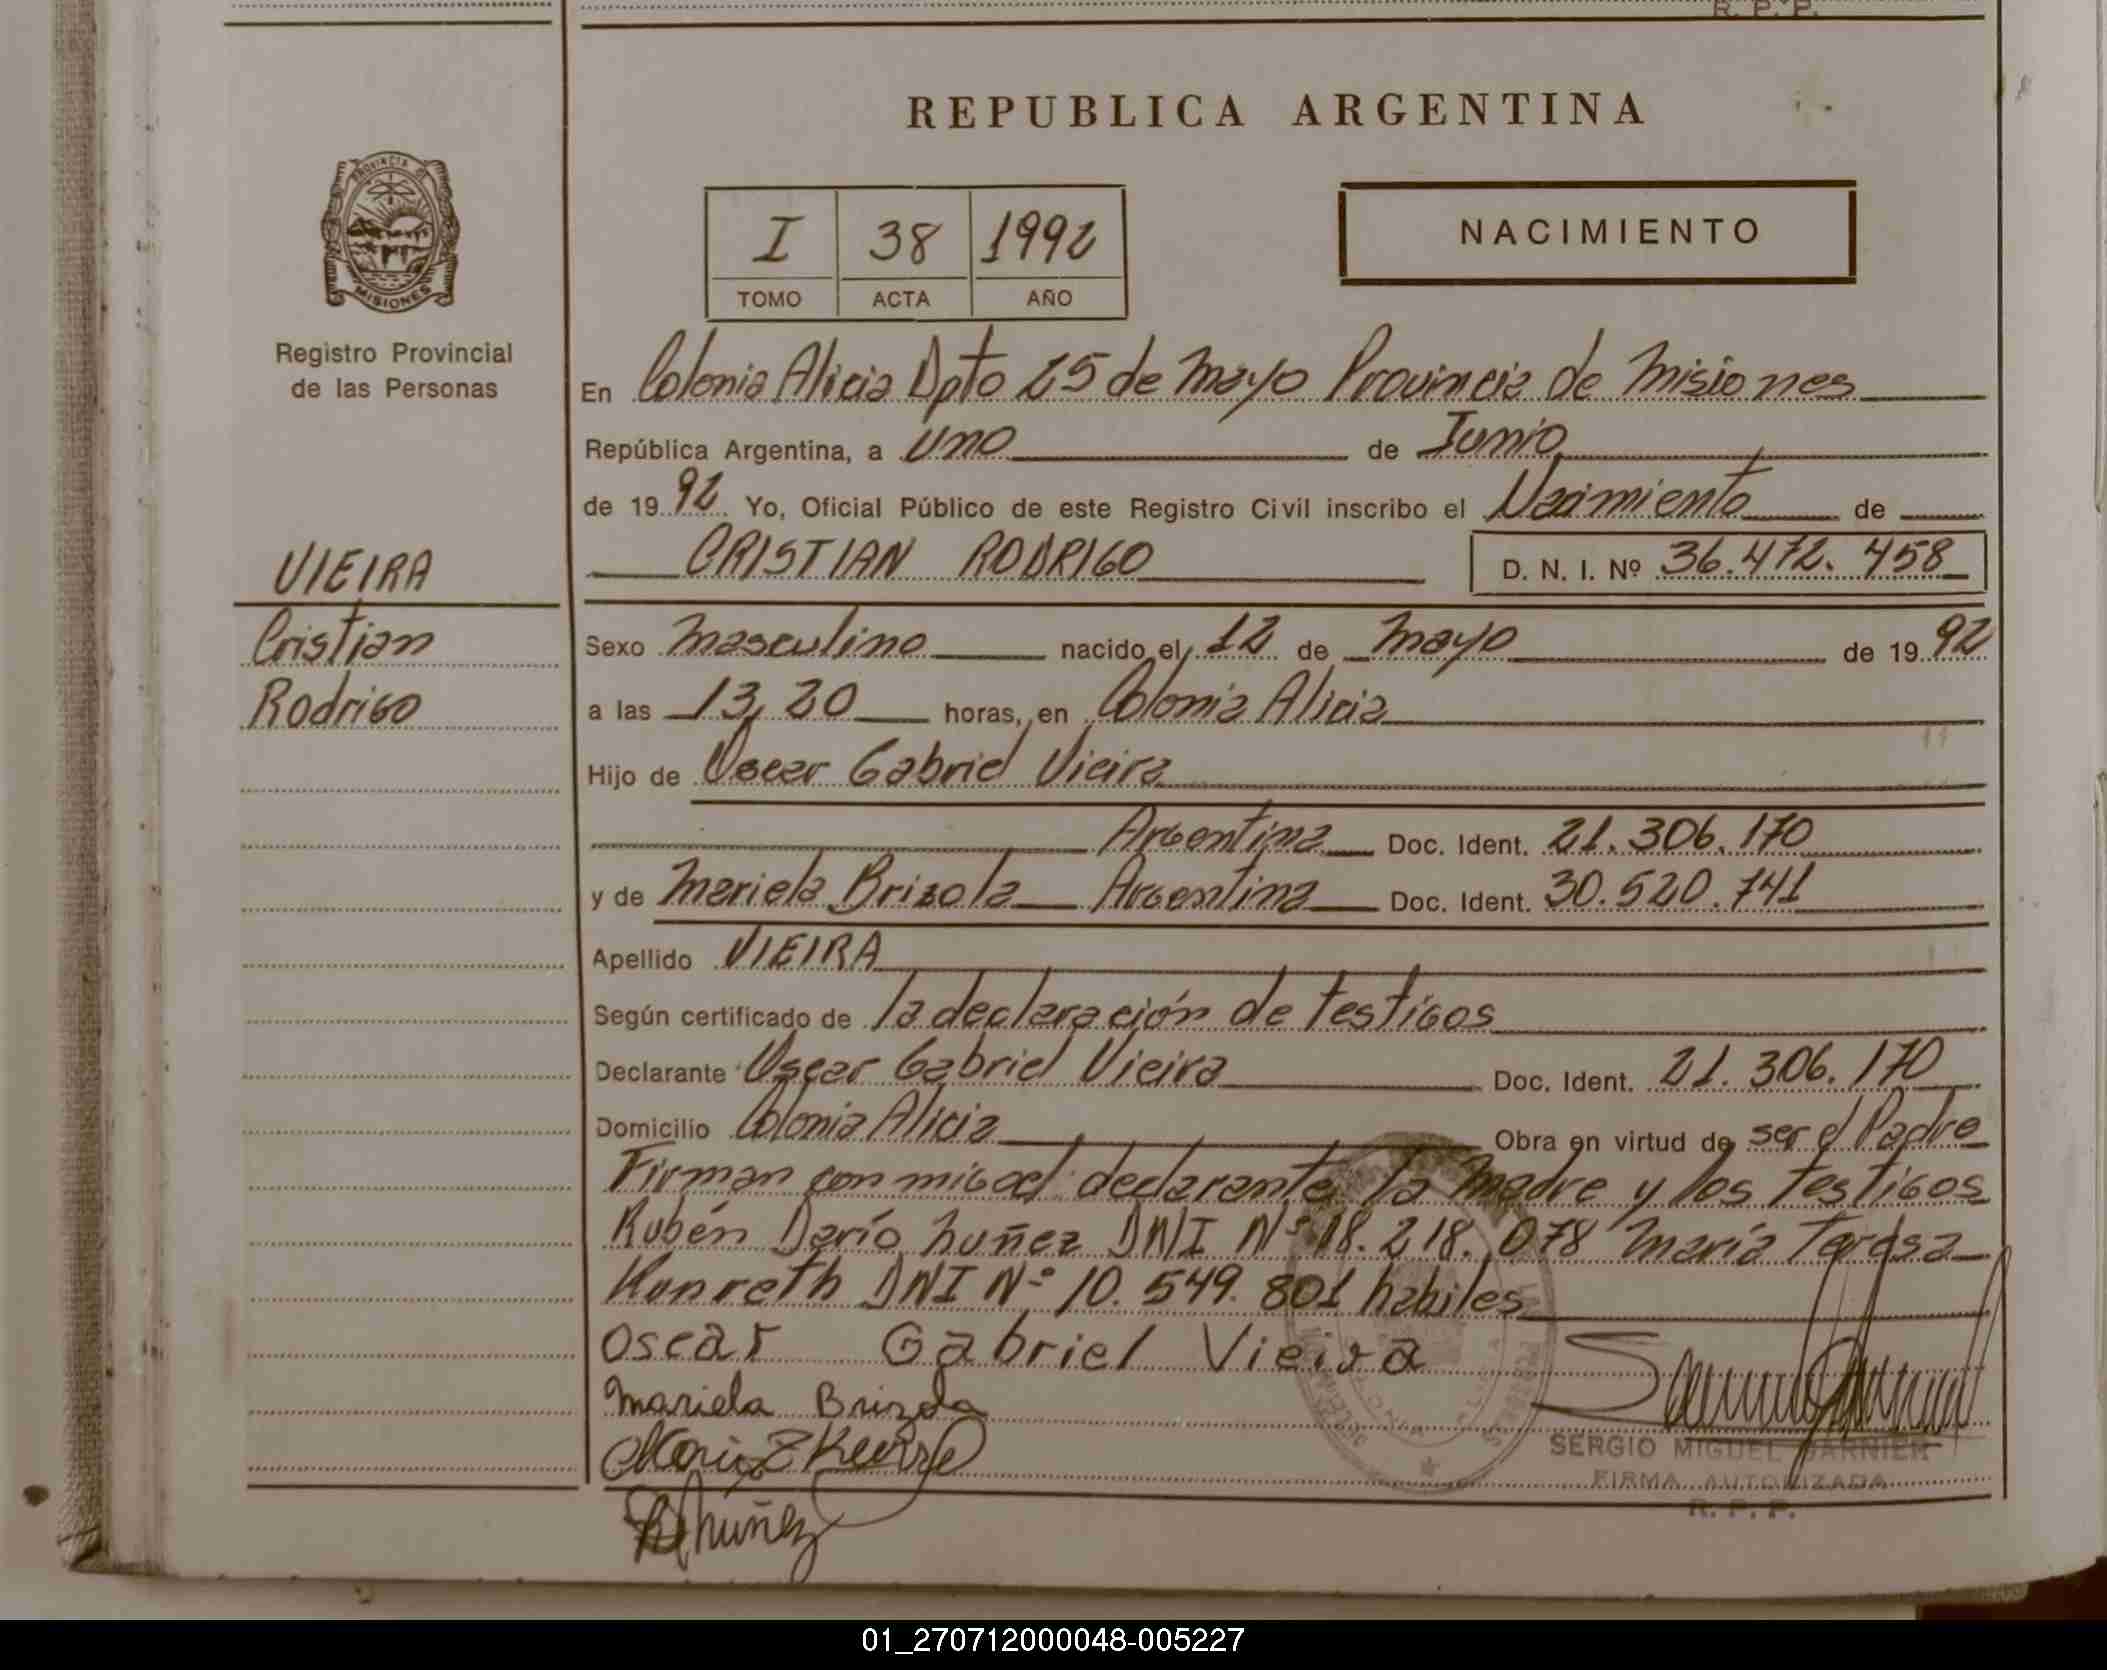 R. P. P.
REPUBLICA ARGENTINA
PROVINCIA DE
MISIONES
Registro Provincial
de las Personas
I 38 1992
TOMO ACTA AÑO
NACIMIENTO
En Colonia Alicia Dpto 25 de Mayo Provincia de Misiones
República Argentina, a uno de Junio
de 19 92 Yo, Oficial Público de este Registro Civil inscribo el Nacimiento de
CRISTIAN RODRIGO D. N. I. Nº 36.472.458
VIEIRA
Cristian
Rodrigo
Sexo Masculino nacido el 12 de Mayo de 19 92
a las 13,20 horas, en Colonia Alicia
Hijo de Oscar Gabriel Vieira
Argentina Doc. Ident. 21.306.170
y de Mariela Brizola Argentina Doc. Ident. 30.520.741
Apellido VIEIRA
Según certificado de la declaración de testigos
Declarante Oscar Gabriel Vieira Doc. Ident. 21.306.170
Domicilio Colonia Alicia Obra en virtud de ser el Padre
Firman conmigo el declarante la Madre y los testigos
Rubén Darío Nuñez DNI Nº 18.218.078 María Teresa
DNI Nº 10.549.801 habiles
Oscar Gabriel Vieira
Mariela Brizola
Nuñez
SERGIO MIGUEL GARNIER
FIRMA AUTORIZADA
R. P. P.
01_270712000048-005227